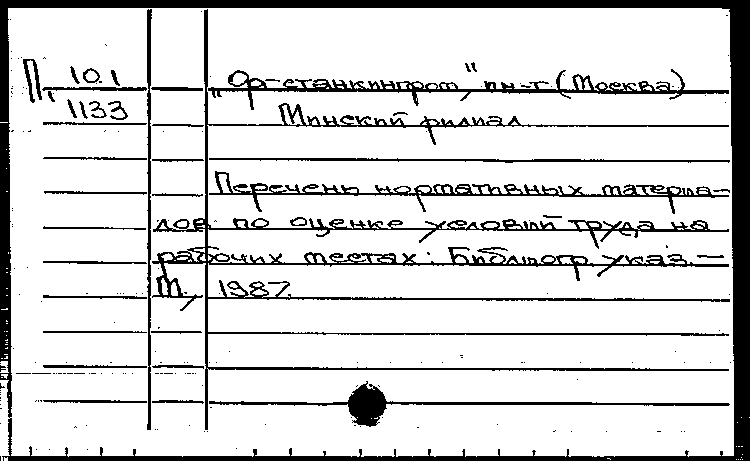 Пт 10.1
1133
"Оргстанкинпром," ин-т (Москва)
Минский филиал
Перечень нормативных материа-
лов по оценке условий труда на
рабочих местах: Библиогр. указ. –
М., 1987.